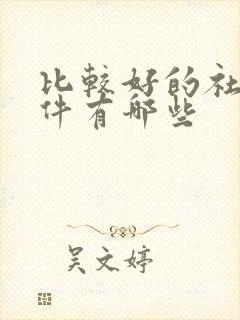 比較好的社
件有哪些
吴文婷